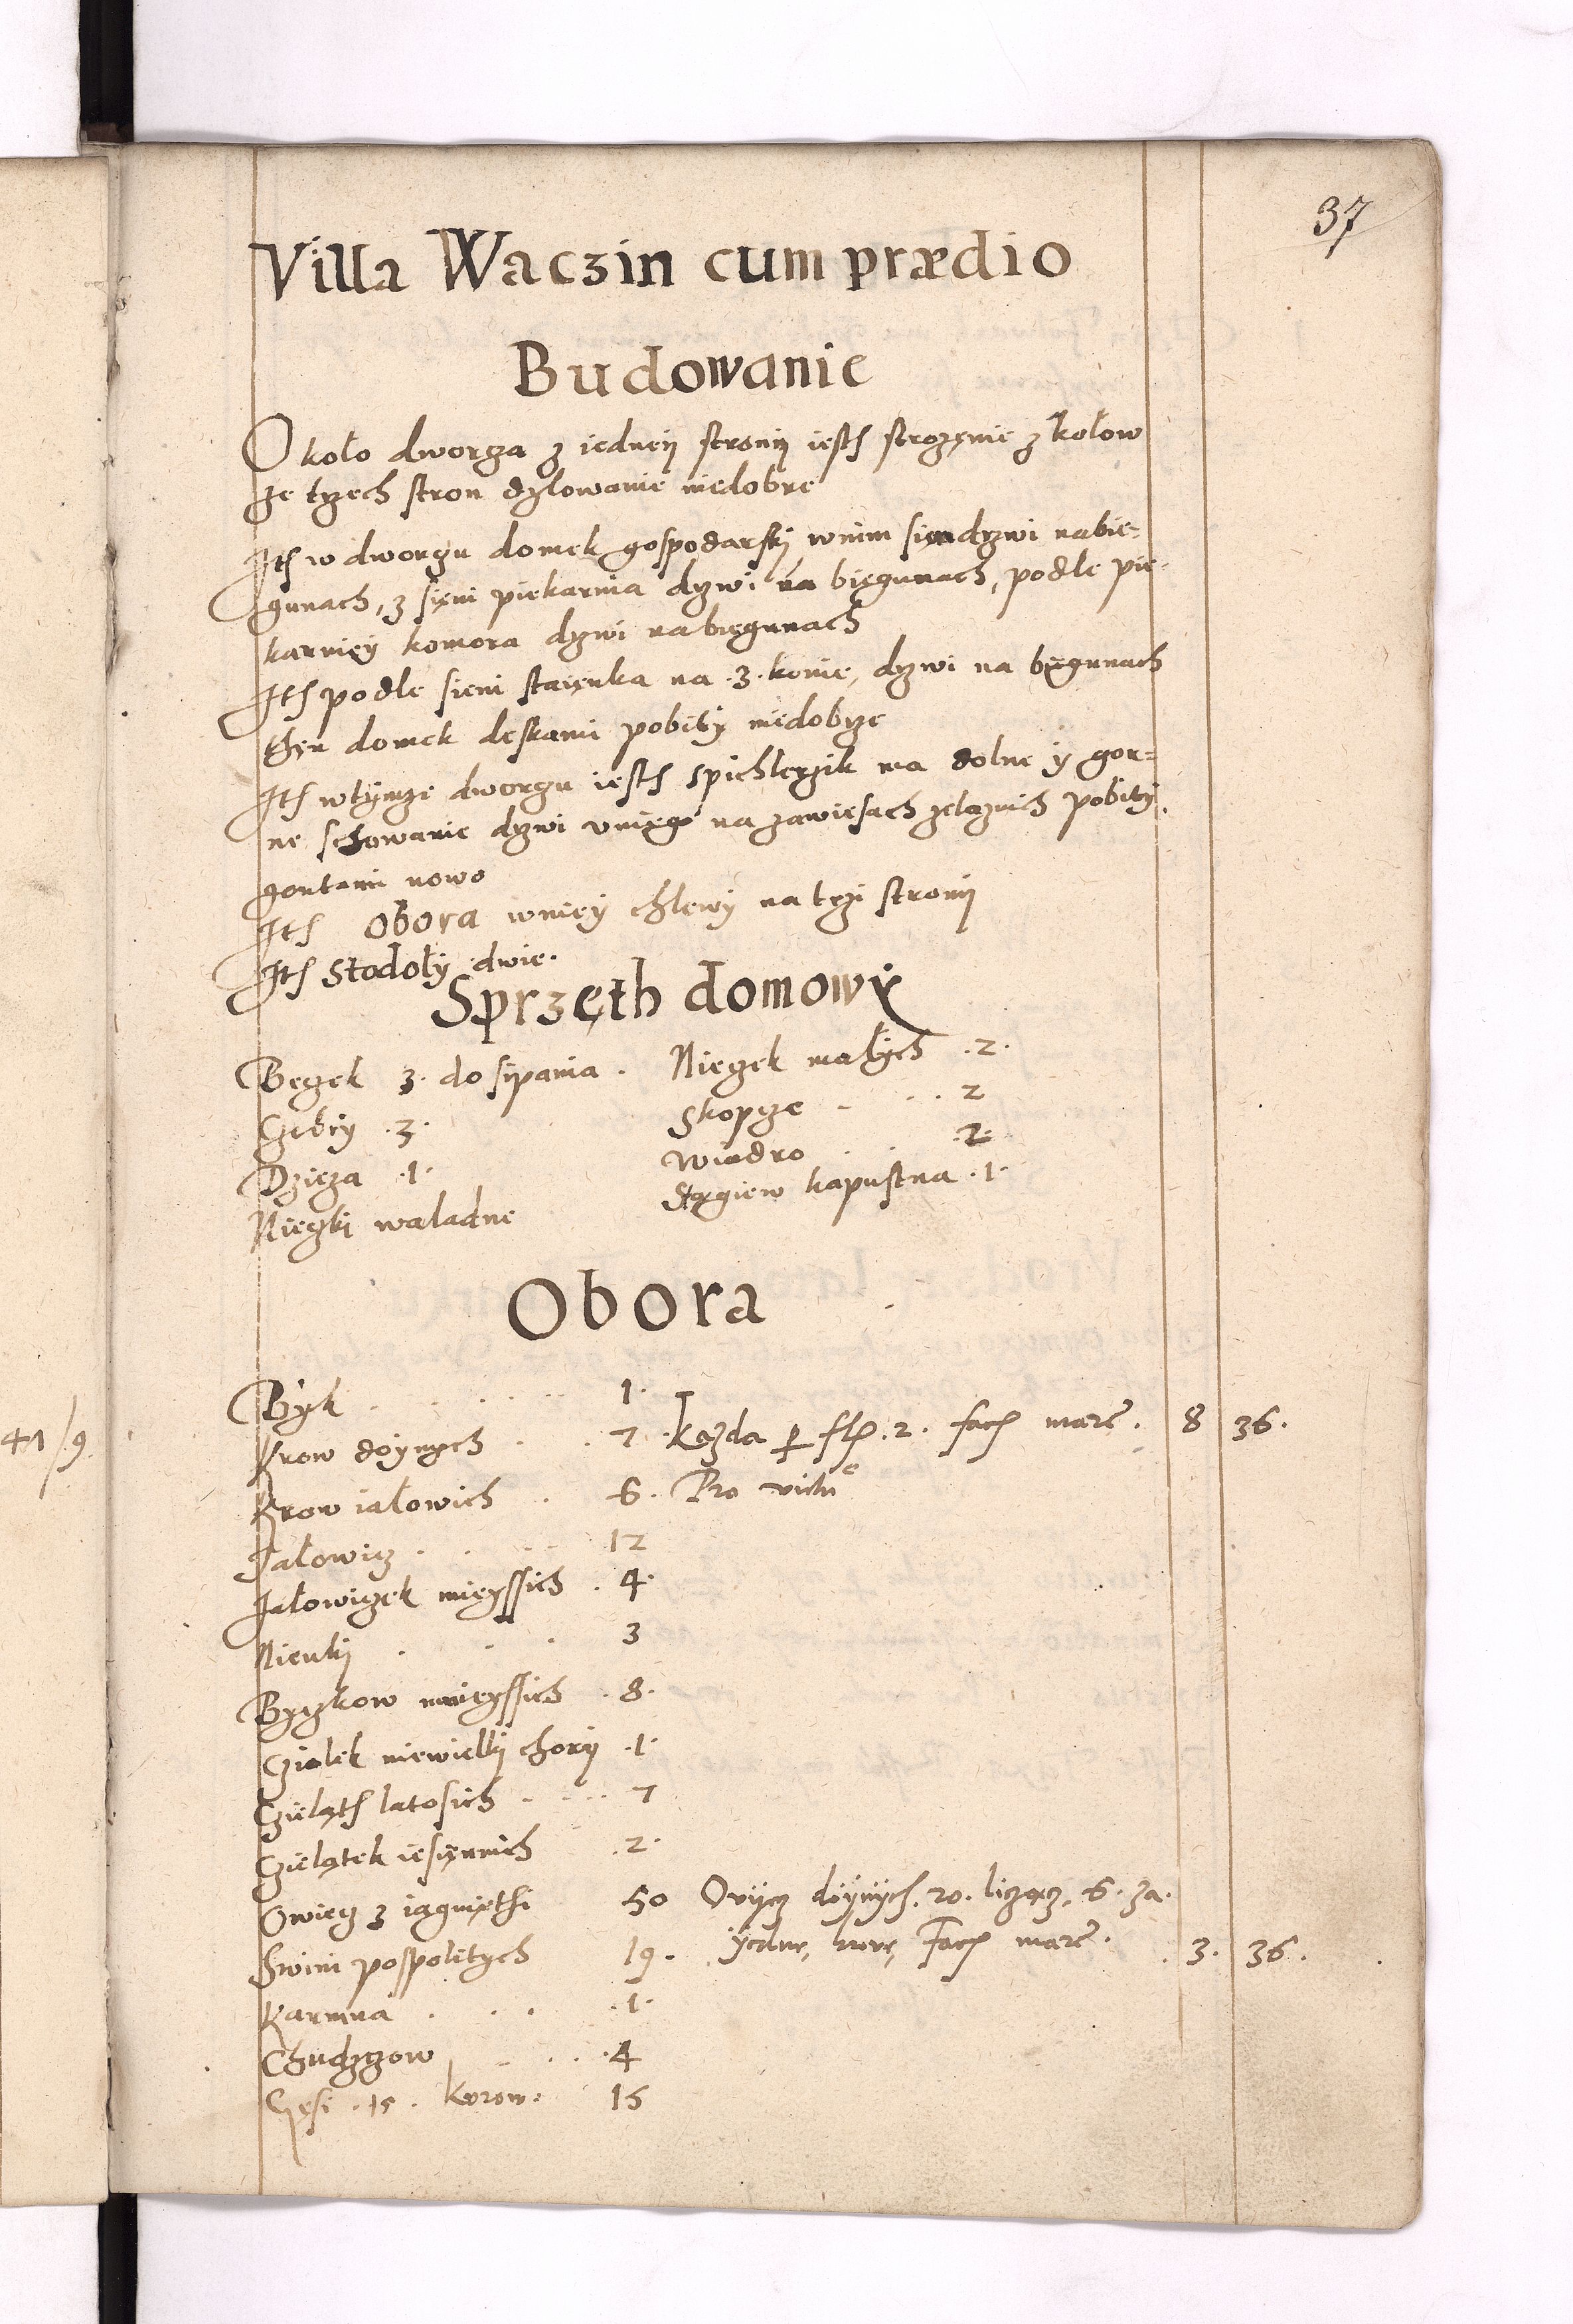 37
Villa Waczin cum prædio
Budowanie
Około dworza z iedneÿ stronÿ iesth strozęnie z kołow
ze trzech stron dÿlowanie niedobre
Ith w dworzu domek gospodarskÿ wnim sięn dzwi nabie-
gunach, z sięni piekarnia dzwi na biegunach, podle pie-
karnięÿ komora dzwi nabiegunach
Ith podle sieni staięnka na .3. konie, dzwi na biegunach
thęn domek deskami pobitÿ niedobrze
Ith wtÿmze dworzu iesth spichlerzik ma dolne ÿ gor-
ne schowanie dzwi vniego na zawiesach zelaznich pobitÿ
gontami nowo
Ith obora wnięÿ chlewÿ na trzi stronÿ
Ith Stodołÿ dwie.
Sprzęth domowÿ
Beczek 3. do sÿpania . Nieczek małÿch .2.
Czebrÿ .3. Skopcze . . . 2
Dzieza .1. Wiadro . . .2.
Nieczki waladne Stągiew kapustna .1.
Obora
Bÿk . . . . 1.
Krow doÿnych . . 7 . kazda per fl. 2. facit marc. 8 36.
Krow iałowich . 6. Pro victu
Jałowicz . . . 12
Jałowiczek mięÿssich . 4.
Nieuki . . . 3
Bÿczkow mnięÿssich . 8.
Cziołek niewielki chorÿ .1.
Czieląth latosich . . . 7
Czielątek iesięnnich .2.
Owiecz z iagnięthi 50 Owÿcz dóÿnÿch. 20. licząc, 6. za.
Swini pospolitych 19. ÿedne krowę Facit marc. . 3. 36.
Karmna . . . .1.
Chudzczow . . . .4
Gęsi .15. kurow. 15
41 9